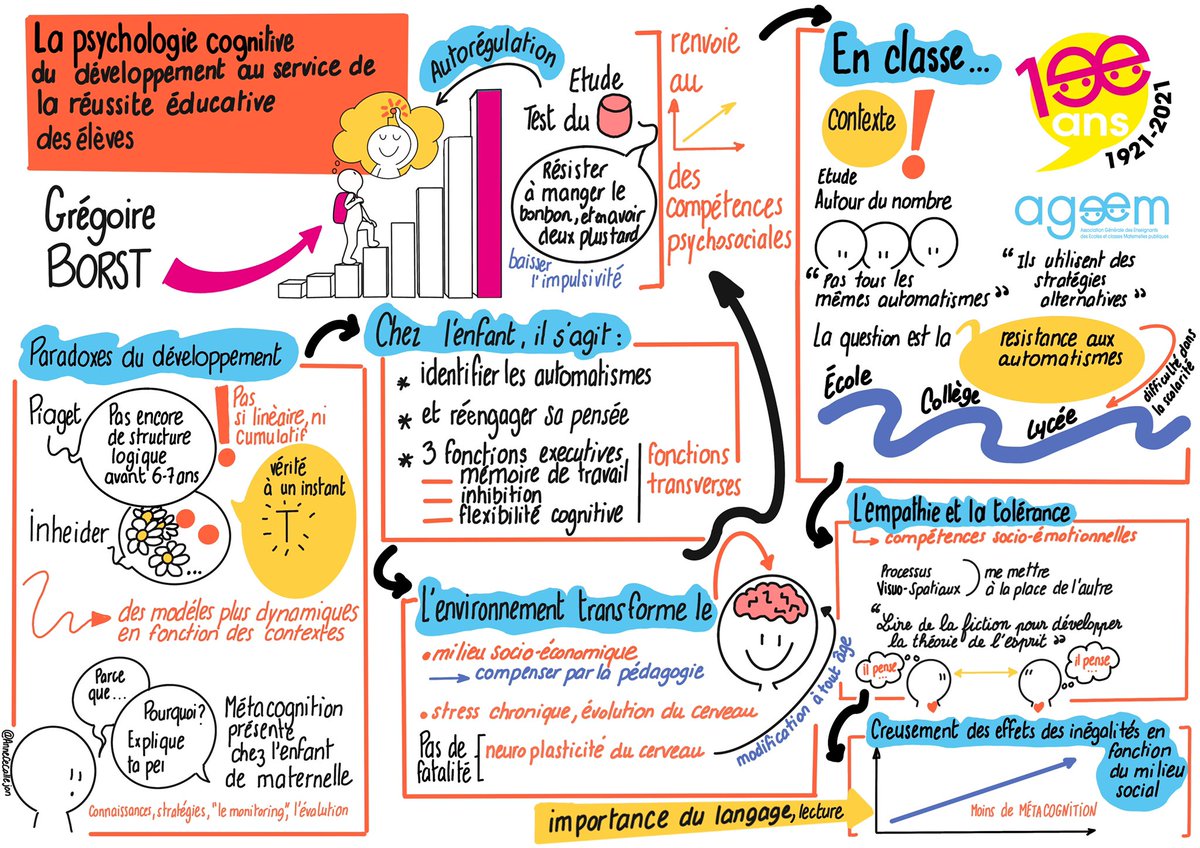 La psychologie cognitive
du développement au service de
la réussite éducative
des élèves
Grégoire
BORST
Autorégulation
Etude
Test du
Résister
à manger le
bonbon, et en avoir
deux plus tard
baisser
l'impulsivité
renvoie
au
des
compétences
psychosociales
Paradoxes du développement
Piaget
Pas encore
de structure
logique
avant 6-7 ans
Pas
si linèaire, ni
cumulatif
vérité
à un instant
T
Inheider
...
des modéles plus dynamiques
en fonction des contextes
Parce
que...
Pourquoi?
Explique
ta pei
Métacognition
présente
chez l'enfant
de maternelle
Connaissances, stratégies, "le monitoring", l'évolution
Chez l'enfant, il s'agit :
* identifier les automatismes
* et réengager sa pensée
* 3 fonctions executives,
mémoire de travail
inhibition
flexibilité cognitive
fonctions
transverses
L'environnement transforme le
• milieu socio-économique
compenser par la pédagogie
• stress chronique, évolution du cerveau
Pas de
fatalité
neuro plasticité du cerveau
modification à tout âge
importance du langage, lecture
En classe...
contexte
!
Etude
Autour du nombre
"Pas tous les
mêmes automatismes"
"Ils utilisent des
stratégies
alternatives"
La question est la
resistance aux
automatismes
École
Collège
Lycée
difficulté dans
la scolarité
100
ans
1921-2021
ageem
Association Générale des Enseignants
des Ecoles et classes Maternelles publiques
L'empathie et la tolérance
compétences socio-émotionnelles
Processus
Visuo-Spatiaux
me mettre
à la place de l'autre
"Lire de la fiction pour développer
la théorie de l'esprit"
il pense
il pense
Creusement des effets des inégalités en
fonction
du milieu
social
Moins de MÉTACOGNITION